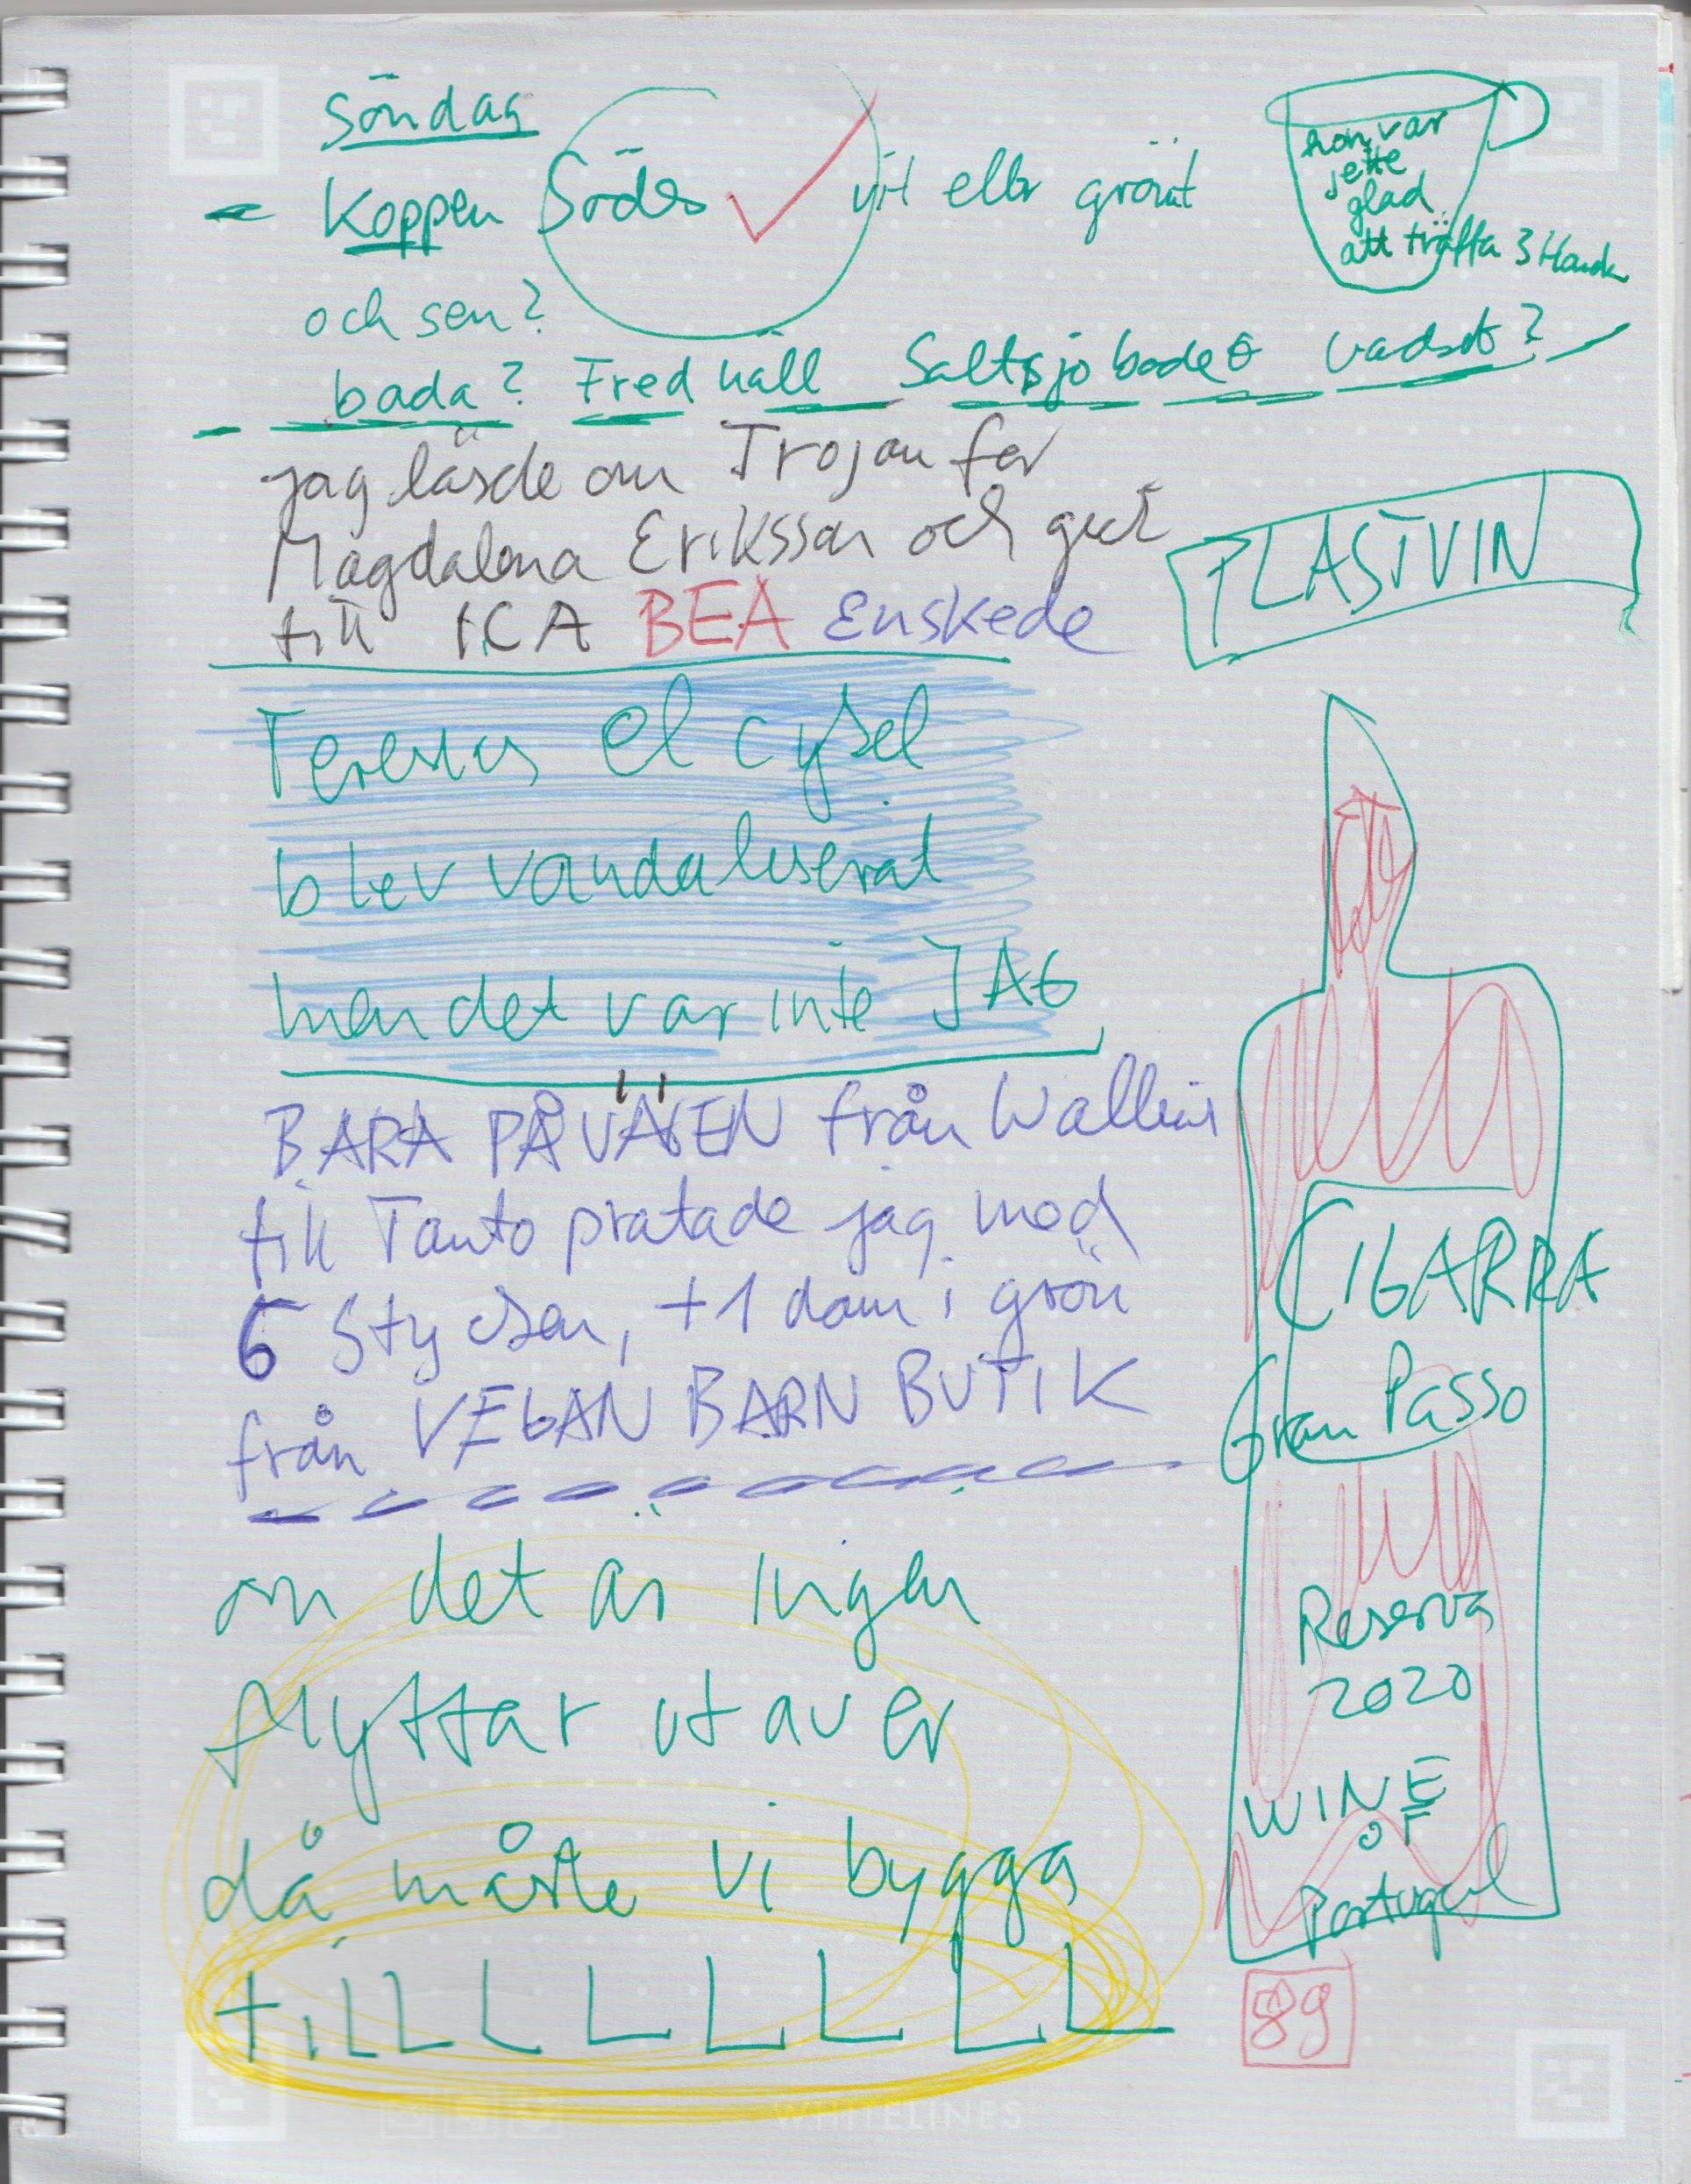 Söndag
Koppen Söder vit eller grönt
hon var
jette
glad
att träffa 3 Hand
och sen?
bada? Fredhäll Saltsjobadet vadsot?
jag läsde om Trojan fer
Magdalena Eriksson och gick
till ICA BEA Enskede
PLASTVIN
Teresas el cykel
blev vandaliserat
men det var inte JAG
BARA PÅ VÄGEN från Wallins
till Tanto pratade jag med
6 Stycken, +1 dam i grön
från VEGAN BARN BUTIK
CIGARRA
Gran Passo
om det är ingen
flyttar ut av er
då måste vi bygga
tiLLLLLLLL
Reserva
2020
WINE
OF
Portugal
89
WHITELINES